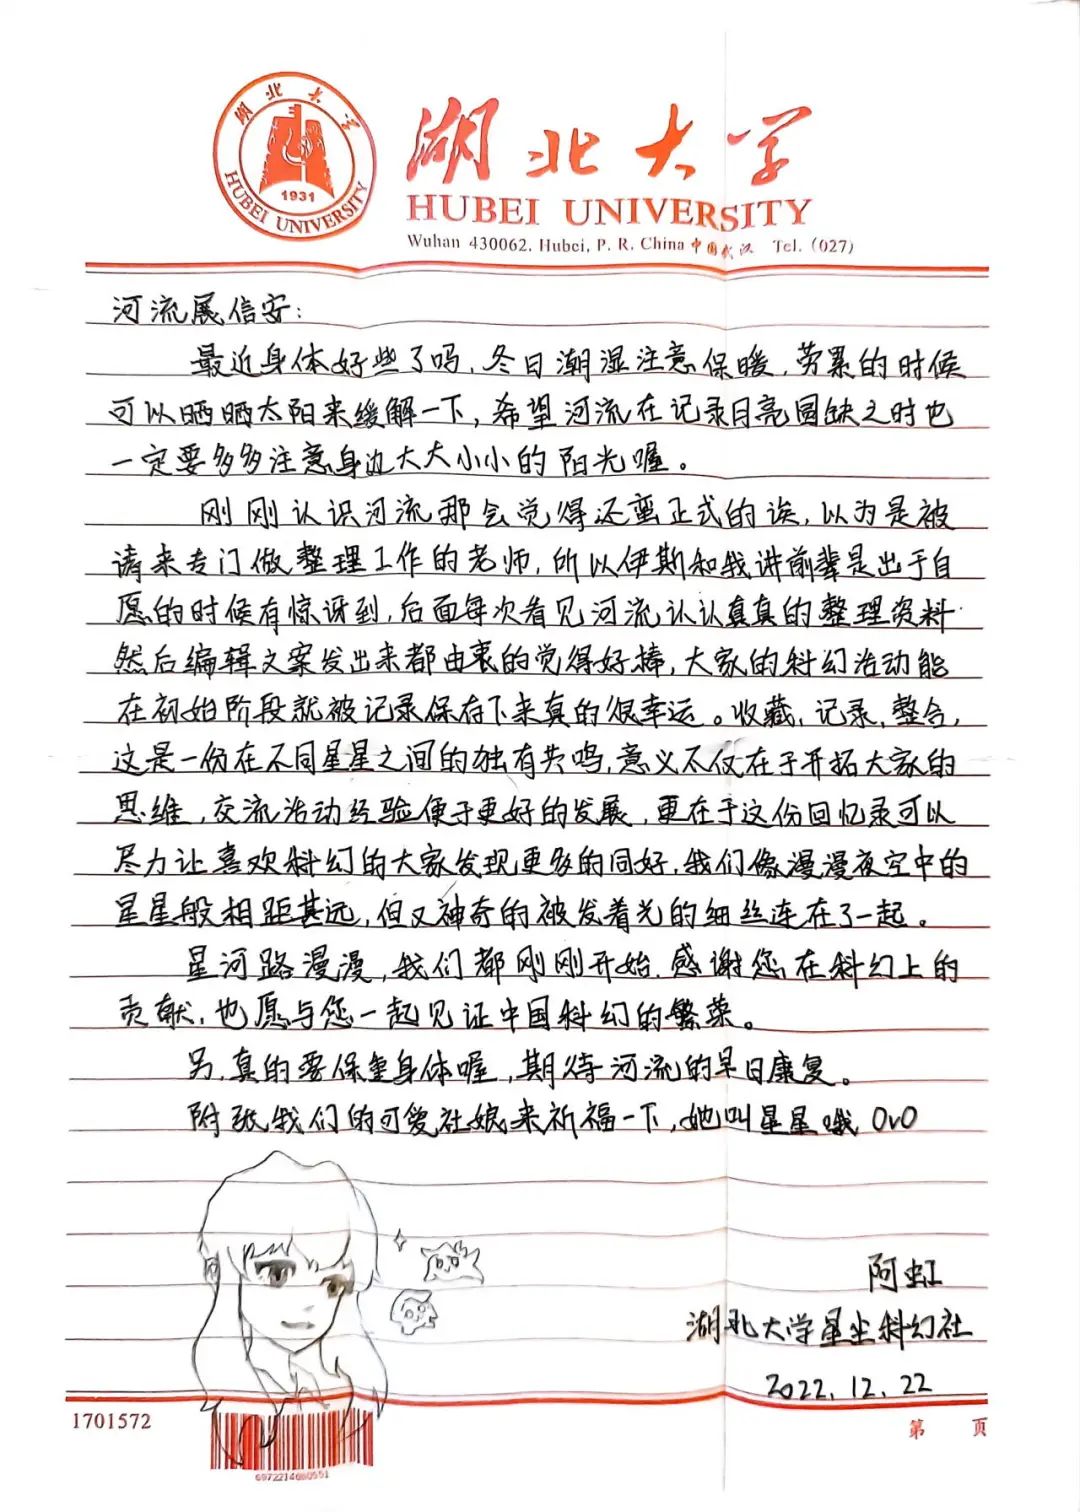 湖北大学
HUBEI UNIVERSITY
1931
湖北大学
HUBEI UNIVERSITY
Wuhan 430062, Hubei, P. R. China 中国武汉 Tel. (027)
河流展信安：
最近身体好些了吗，冬日潮湿注意保暖，劳累的时候
可以晒晒太阳来缓解一下，希望河流在记录月亮圆缺之时也
一定要多多注意身边大大小小的阳光喔。
刚刚认识河流那会觉得还蛮正式的诶，以为是被
请来专门做整理工作的老师，所以伊斯和我讲前辈是出于自
愿的时候有惊讶到，后面每次看见河流认认真真的整理资料
然后编辑文案发出来都由衷的觉得好棒，大家的科幻活动能
在初始阶段就被记录保存下来真的很幸运。收藏，记录，整合，
这是一份在不同星星之间的独有共鸣，意义不仅在于开拓大家的
思维，交流活动经验便于更好的发展，更在于这份回忆录可以
尽力让喜欢科幻的大家发现更多的同好，我们像漫漫夜空中的
星星般相距甚远，但又神奇的被发着光的细丝连在了一起。
星河路漫漫，我们都刚刚开始，感谢您在科幻上的
贡献，也愿与您一起见证中国科幻的繁荣。
另，真的要保重身体喔，期待河流的早日康复。
附张我们的可爱社娘来祈福一下，她叫星星哦 OvO
阿虹
湖北大学星尘科幻社
2022.12.22
1701572
第 页